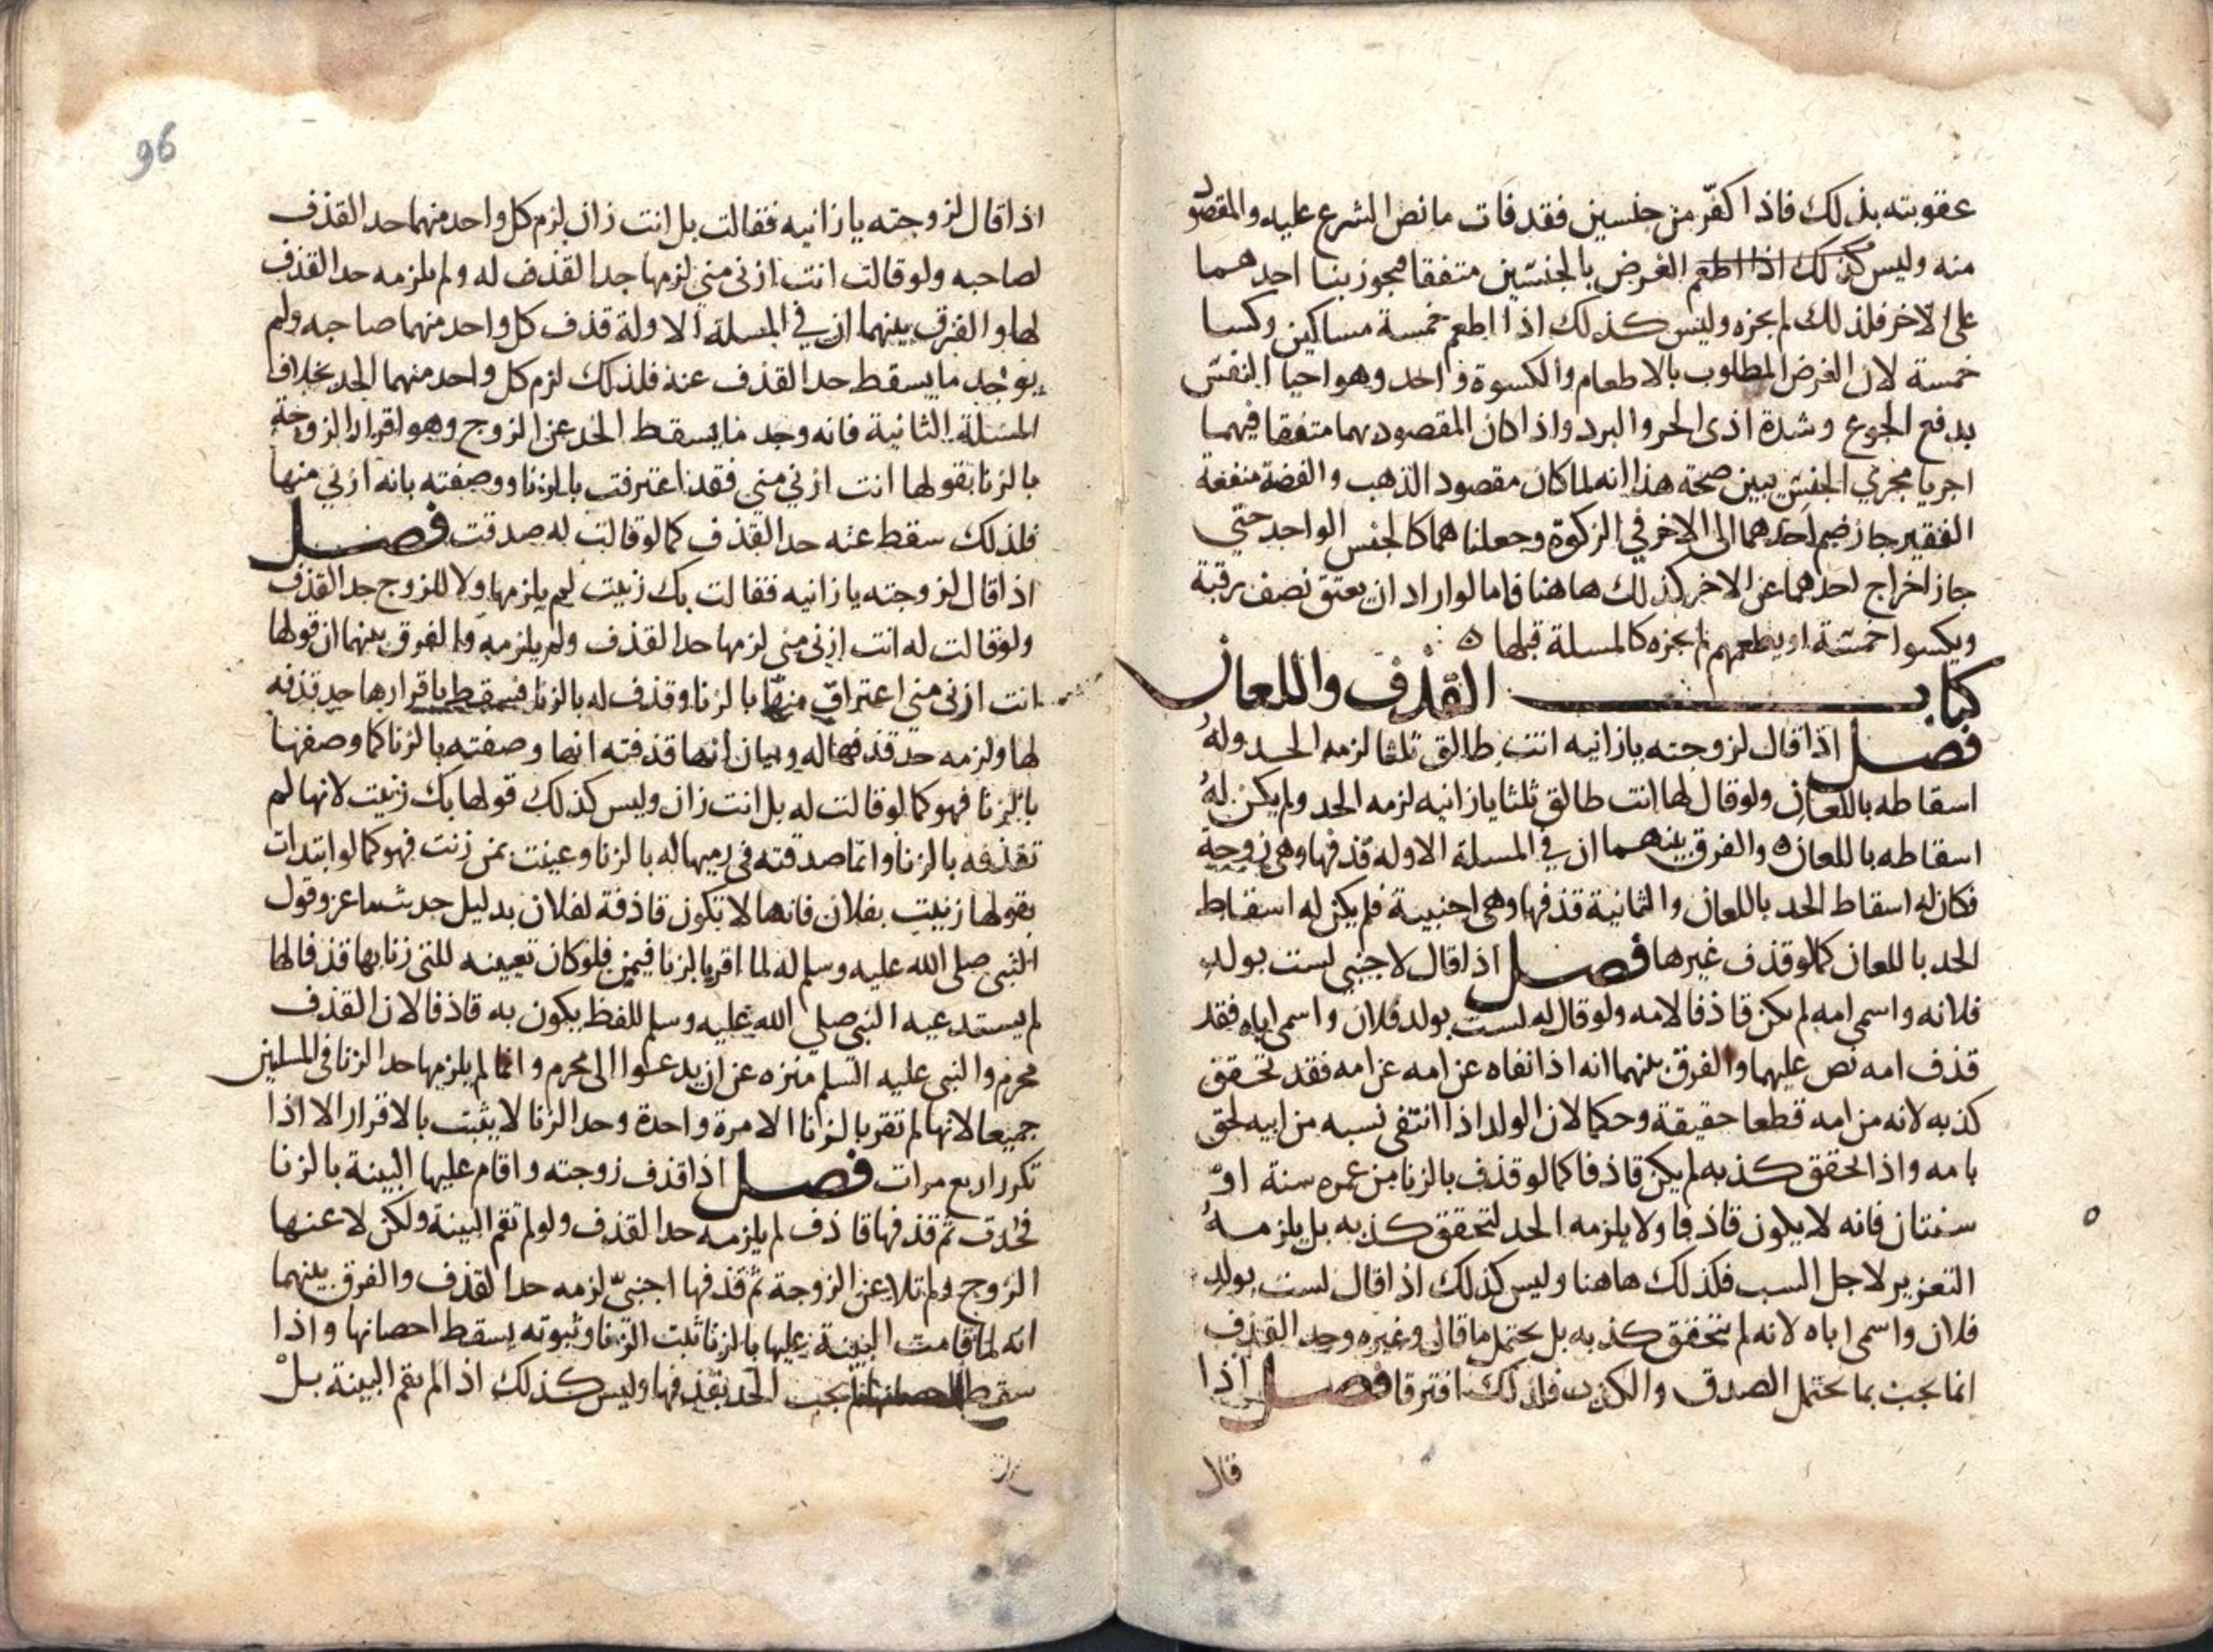 عقوبته بذلك فاذا كفّر من جنسين فقد فات ما نص الشرع عليه والمقصود
منه وليس كذلك اذا اطعم الغرض بالجنسين متفقا فيجوز بنا احدهما
على الاخر فلذلك لم يجزه وليس كذلك اذا اطعم خمسة مساكين وكسا
خمسة لان الغرض المطلوب بالاطعام والكسوة واحد وهو احيا النفس
بدفع الجوع وشدة اذى الحر والبرد واذا كان المقصود بهما متفقا فيهما
اجريا مجري الجنس يبين صحة هذا انه لما كان مقصود الذهب والفضة منفعة
الفقير جاز ضم احدهما الى الاخر في الزكوة وجعلنا هما كالجنس الواحد حتي
جاز اخراج احدهما عن الاخر كذلك هاهنا فاما لو اراد ان يعتق نصف رقبة
ويكسوا خمسة او يطعمهم لم يجزه كالمسلة قبلها ه
كتاب القذف واللعان
فصل اذا قال لزوجته يا زانيه انت طالق ثلثا لزمه الحد وله
اسقاطه باللعان ولو قال لها انت طالق ثلثا يا زانيه لزمه الحد ولم يكن له
اسقاطه باللعان ه والفرق بينهما ان في المسلة الاوله قذفها وهى زوجة
فكان له اسقاط الحد باللعان والثانية قذفها وهى اجنبية فلم يكن له اسقاط
الحد باللعان كما لو قذف غيرها فصل اذا قال لاجنبي لست بولد
فلانه واسمى امه لم يكن قاذفا لامه ولو قال له لست بولد فلان واسمى اباه فقد
قذف امه نص عليهما والفرق بينهما انه اذا نفاه عن امه عن امه فقد تحقق
كذبه لانه من امه قطعا حقيقة وحكما لان الولد اذا انتفى نسبه من ابيه لحق
بامه واذا تحقق كذبه لم يكن قاذفا كما لو قذف بالزنا من عمره سنة او
سنتان فانه لا يكون قاذفا ولا يلزمه الحد لتحقق كذبه بل يلزمه
التعزير لاجل السب فكذلك هاهنا وليس كذلك اذا قال لست بولد
فلان واسمى اباه لانه لم يتحقق كذبه بل يحتمل ما قال وغيره وحد القذف
انما يجب بما يحتمل الصدق والكذب فلذلك افترقا فصل اذا
قال
96
اذا قال لزوجته يا زانيه فقالت بل انت زان لزم كل واحد منهما حد القذف
لصاحبه ولو قالت انت ازنى مني لزمها حد القذف له ولم يلزمه حد القذف
لها والفرق بينهما ان في المسلة الاولة قذف كل واحد منهما صاحبه ولم
يوجد ما يسقط حد القذف عنه فلذلك لزم كل واحد منهما الحد بخلاف
المسئلة الثانية فانه وجد ما يسقط الحد عن الزوج وهو اقرار الزوجة
بالزنا بقولها انت ازني مني فقد اعترفت بالزنا ووصفته بانه ازني منها
فلذلك سقط عنه حد القذف كما لو قالت له صدقت فصل
اذا قال لزوجته يا زانيه فقالت بك زنيت لم يلزمها ولا للزوج حد القذف
ولو قالت له انت ازنى مني لزمها حد القذف ولم يلزمه والفرق بينهما ان قولها
انت ازنى مني اعتراف منها بالزنا وقذف له بالزنا فسقط باقرارها حد قذفه
لها ولزمه حد قذفها له وبيان انها قذفته انها وصفته بالزنا كما وصفها
بالزنا فهو كما لو قالت له بل انت زان وليس كذلك قولها بك زنيت لانها لم
تقذفه بالزنا وانما صدقته في رميها له بالزنا وعينت بمن زنت فهو كما لو ابتدات
بقولها زنيت بفلان فانها لا تكون قاذفة لفلان بدليل حديث ماعز وقول
النبى صلى الله عليه وسلم له لما اقر بالزنا فبمن فلو كان تعيينه للتى زنا بها قذفا لها
لم يستدعيه النبي صلي الله عليه وسلم للفظ يكون به قاذفا لان القذف
محرم والنبى عليه السلم منزه عن ان يدعوا الى محرم وانما لم يلزمها حد الزنا فى المسلتين
جميعا لانها لم تقر بالزنا الا مرة واحدة وحد الزنا لا يثبت بالاقرار الا اذا
تكرر اربع مرات فصل اذا قذف زوجته واقام عليها البينة بالزنا
فحدت ثم قذفها قاذف لم يلزمه حد القذف ولو لم تقم البينة ولكن لاعنها
الزوج ولم تلاعن الزوجة ثم قذفها اجنبيّ لزمه حد القذف والفرق بينهما
انه لما قامت البينة عليها بالزنا ثبت الزنا وثبوته يسقط احصانها واذا
سقط احصانها لم يجب الحد بقذفها وليس كذلك اذا لم تقم البينة بل